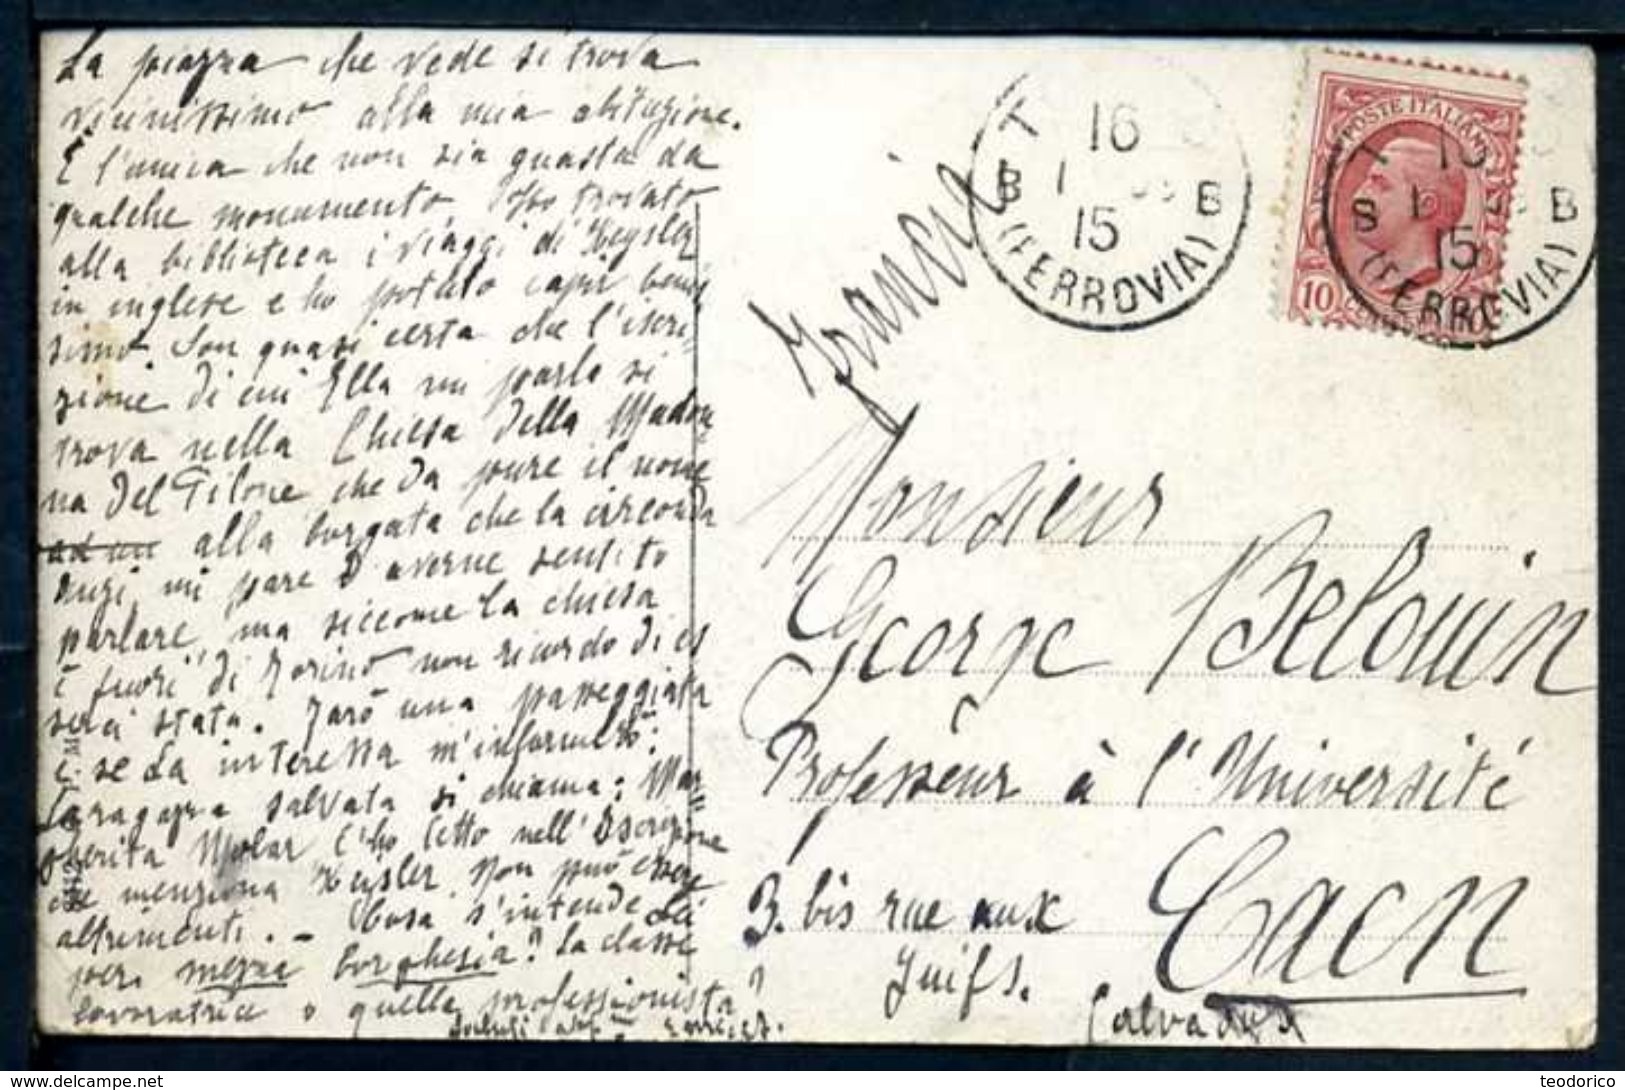 La piazza che vede si trova
vicinissimo alla mia abitazione.
È l'unica che non sia guasta da
qualche monumento. Ho trovato
alla biblioteca i viaggi di Keysler
in inglese e ho potuto capir benis
simo. Son quasi certa che l'iscri-
zione di cui Ella mi parla si
trova nella Chiesa della Madon
na del Pilone che dà pure il nome
ad un alla borgata che la circonda
Anzi mi pare d'averne sentito
parlare, ma siccome la chiesa
è fuori di Torino non ricordo di es
serci stata. Farò una passeggiata
e se La interessa m'informerò.
La ragazza salvata si chiama: Mar=
gherita Molar l'ho letto nell'Iscrizione
che menziona Keysler. Non può essere
altrimenti. - Cosa s'intende Lei
per mezza borghesia? La classe
lavoratrice o quella professionista?
Francia
T 16
B 1 B
15
(FERROVIA)
POSTE ITALIANE
10
T 16
S 1 B
15
(FERROVIA)
Monsieur
George Belouin
Professeur à l'Université
3. bis rue aux
Juifs.
Caen
Calvados
teodorico